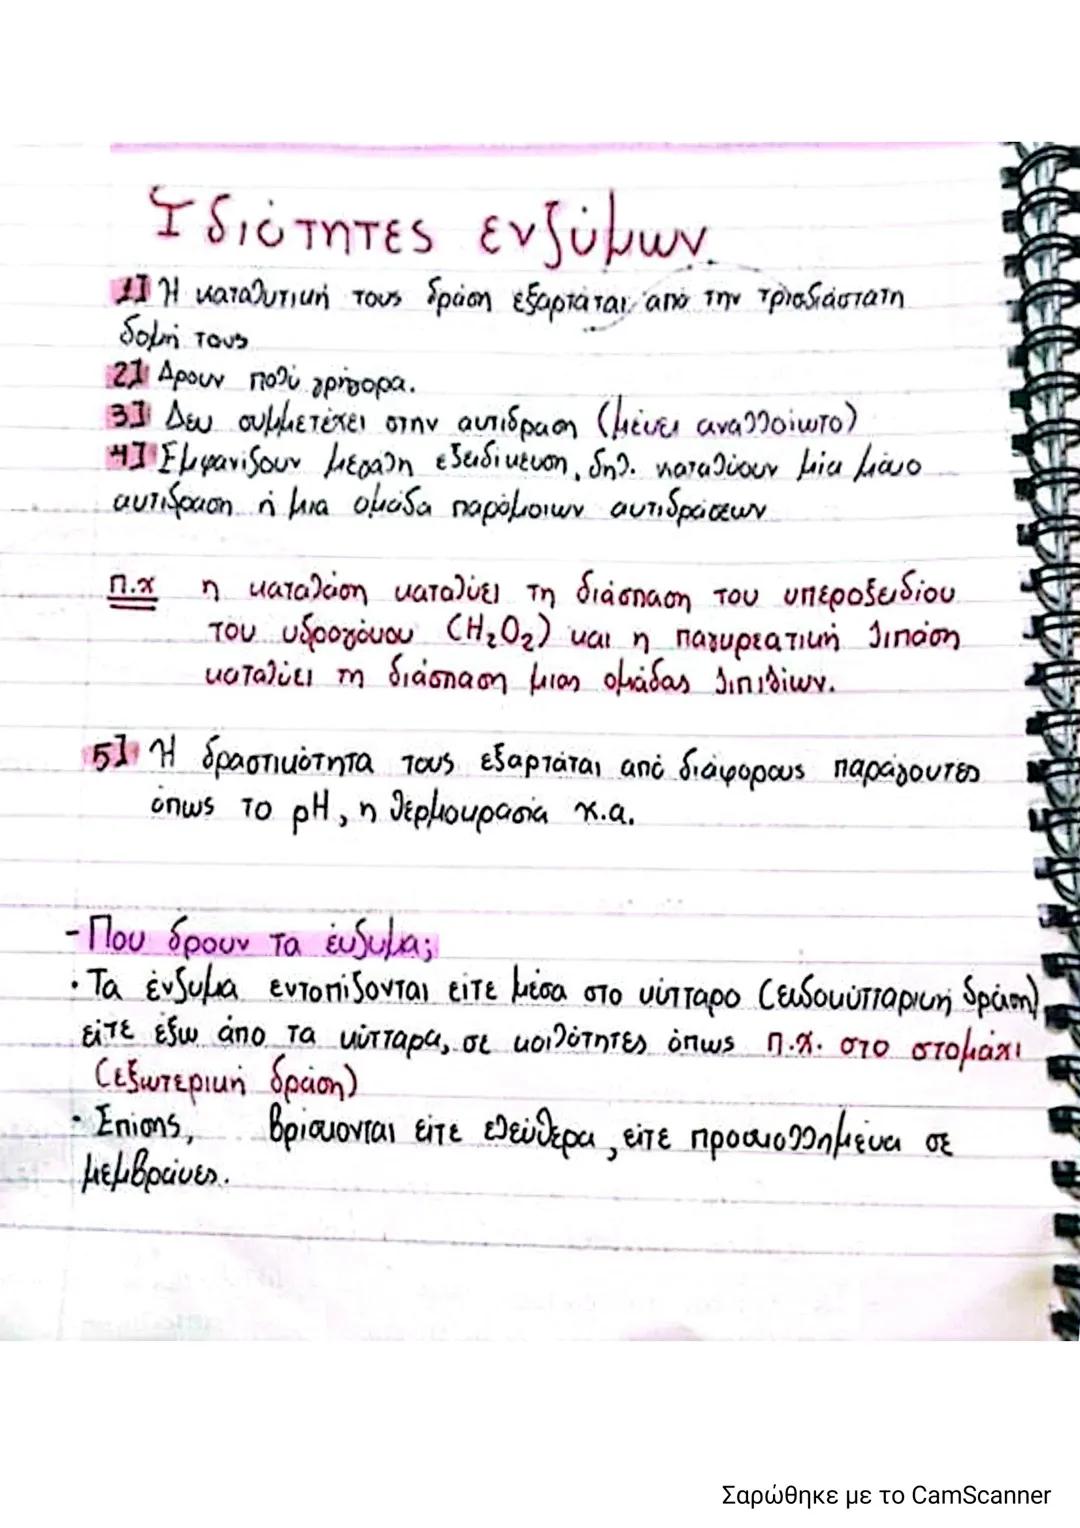 Ιδιότητες ενζύμων.
1] Η καταλυτική τους δράση εξαρτάται από την τρισδιάστατη
δομή τους
2] Δρουν πολύ γρήγορα.
3] Δεν συμμετέχει στην αντιδραση (μένει αναλλοίωτο)
4] Εμφανιζουν μεγάλη εξειδίκευση, δηλ. καταλύουν μία μόνο
αντιδραση ή μια ομάδα παρόμοιων αντιδράσεων
π.χ η καταλάση καταλύει τη διάσπαση του υπεροξειδίου
του υδρογόνου (H₂O₂) και η παγκρεατική λιπάση
καταλύει τη διάσπαση μιας ομάδας λιπιδίων.
5] Η δραστικότητα τους εξαρτάται από διάφορους παράγοντες
όπως το pH, η θερμοκρασία κ.α.
- Που δρουν τα ένζυμα;
· Τα ένζυμα εντοπίζονται είτε μέσα στο κύτταρο (ενδοκύτταρική δράση)
είτε έξω άπο τα κύτταρα, σε κοιλότητες όπως π.χ. στο στομάχι
(εξωτερική δράση)
· Επίσης, βρίσκονται είτε ελεύθερα, είτε προσκολλημένα σε
μεμβράνες.
Σαρώθηκε με το CamScanner